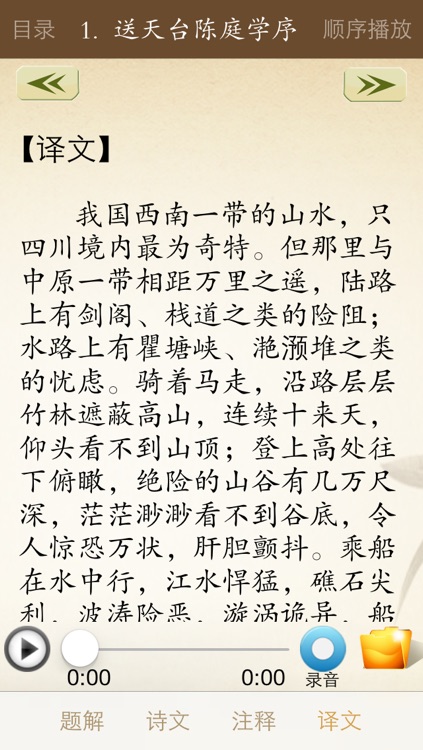 目录 1. 送天台陈庭学序 顺序播放
【译文】
我国西南一带的山水，只
四川境内最为奇特。但那里与
中原一带相距万里之遥，陆路
上有剑阁、栈道之类的险阻；
水路上有瞿塘峡、滟滪堆之类
的忧虑。骑着马走，沿路层层
竹林遮蔽高山，连续十来天，
仰头看不到山顶；登上高处往
下俯瞰，绝险的山谷有几万尺
深，茫茫渺渺看不到谷底，令
人惊恐万状，肝胆颤抖。乘船
在水中行，江水悍猛，礁石尖
利，波涛险恶，漩涡诡异，船
0:00 0:00 录音
题解 诗文 注释 译文